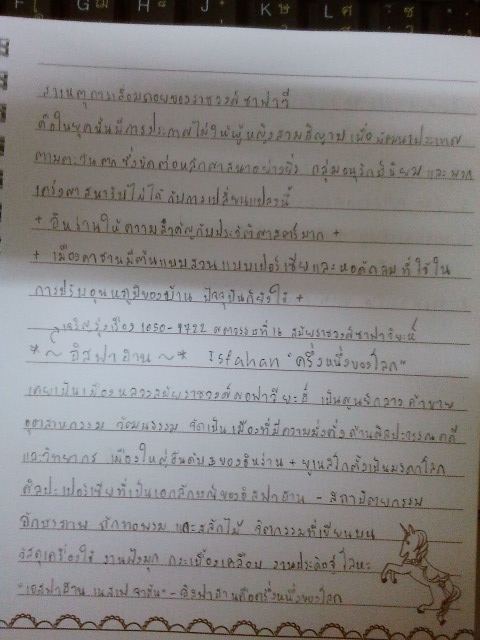 F G H J K L
สาเหตุการเสื่อมถอยของราชวงศ์ซาฟาวี
คือในยุคนั้นมีการประกาศไม่ให้ผู้หญิงสวมฮิญาบ เพื่อพัฒนาประเทศ
ตามตะวันตก ซึ่งขัดต่อหลักศาสนาอย่างยิ่ง กลุ่มอนุรักษ์นิยม และพวก
เคร่งศาสนารับไม่ได้กับการเปลี่ยนแปลงนี้
+ อิหร่านให้ความสำคัญกับประวัติศาสตร์มาก +
+ เมืองคาชานมีต้นแบบสวนแบบเปอร์เซียและหอดักลมที่ใช้ใน
การปรับอุณหภูมิของบ้าน ปัจจุบันก็ยังใช้ +
เจริญรุ่งเรือง 1050-1722 ศตวรรษที่ 16 สมัยราชวงศ์ซาฟาวิยะห์
*~ อิสฟาฮาน ~* Isfahan "ครึ่งหนึ่งของโลก"
เคยเป็นเมืองหลวงสมัยราชวงศ์ซอฟาวียะฮ์ เป็นศูนย์กลางค้าขาย
อุตสาหกรรม วัฒนธรรม จัดเป็นเมืองที่มีความมั่งคั่งด้านศิลปะวรรณคดี
และวิทยาการ เมืองใหญ่อันดับ 3 ของอิหร่าน + ยูเนสโกตั้งเป็นมรดกโลก
ศิลปะเปอร์เซียที่เป็นเอกลักษณ์ของอิสฟาฮาน - สถาปัตยกรรม
อักษรภาพ ถักทอพรม และสลักไม้ จิตกรรมที่เขียนบน
วัสดุเครื่องใช้ งานฝังมุก กระเบื้องเคลือบ งานประดิษฐ์โลหะ
"เอสฟาฮาน เนสเฟ จาฮัน" - อิสฟาฮานคือครึ่งหนึ่งของโลก